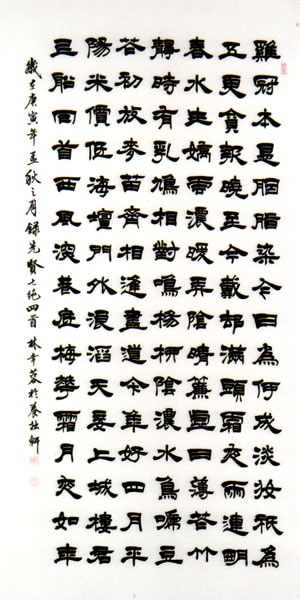 雞冠本是胭脂染今日為何成淡妝祇為
五更貪報曉至今戴却滿頭霜夜雨連明
春水生嬌雲濃暖弄陰晴簾虛日薄花竹
靜時有乳鳩相對鳴楊柳陰濃水鳥啼豆
花初放麥苗齊相逢盡道今年好四月平
陽米價低海壇門外浪滔天妾上城樓君
上船回首西風深巷底梅華霜月夜如年
歲在庚寅年孟秋之月錄先賢七絕四首 林幸蓉於養拙軒